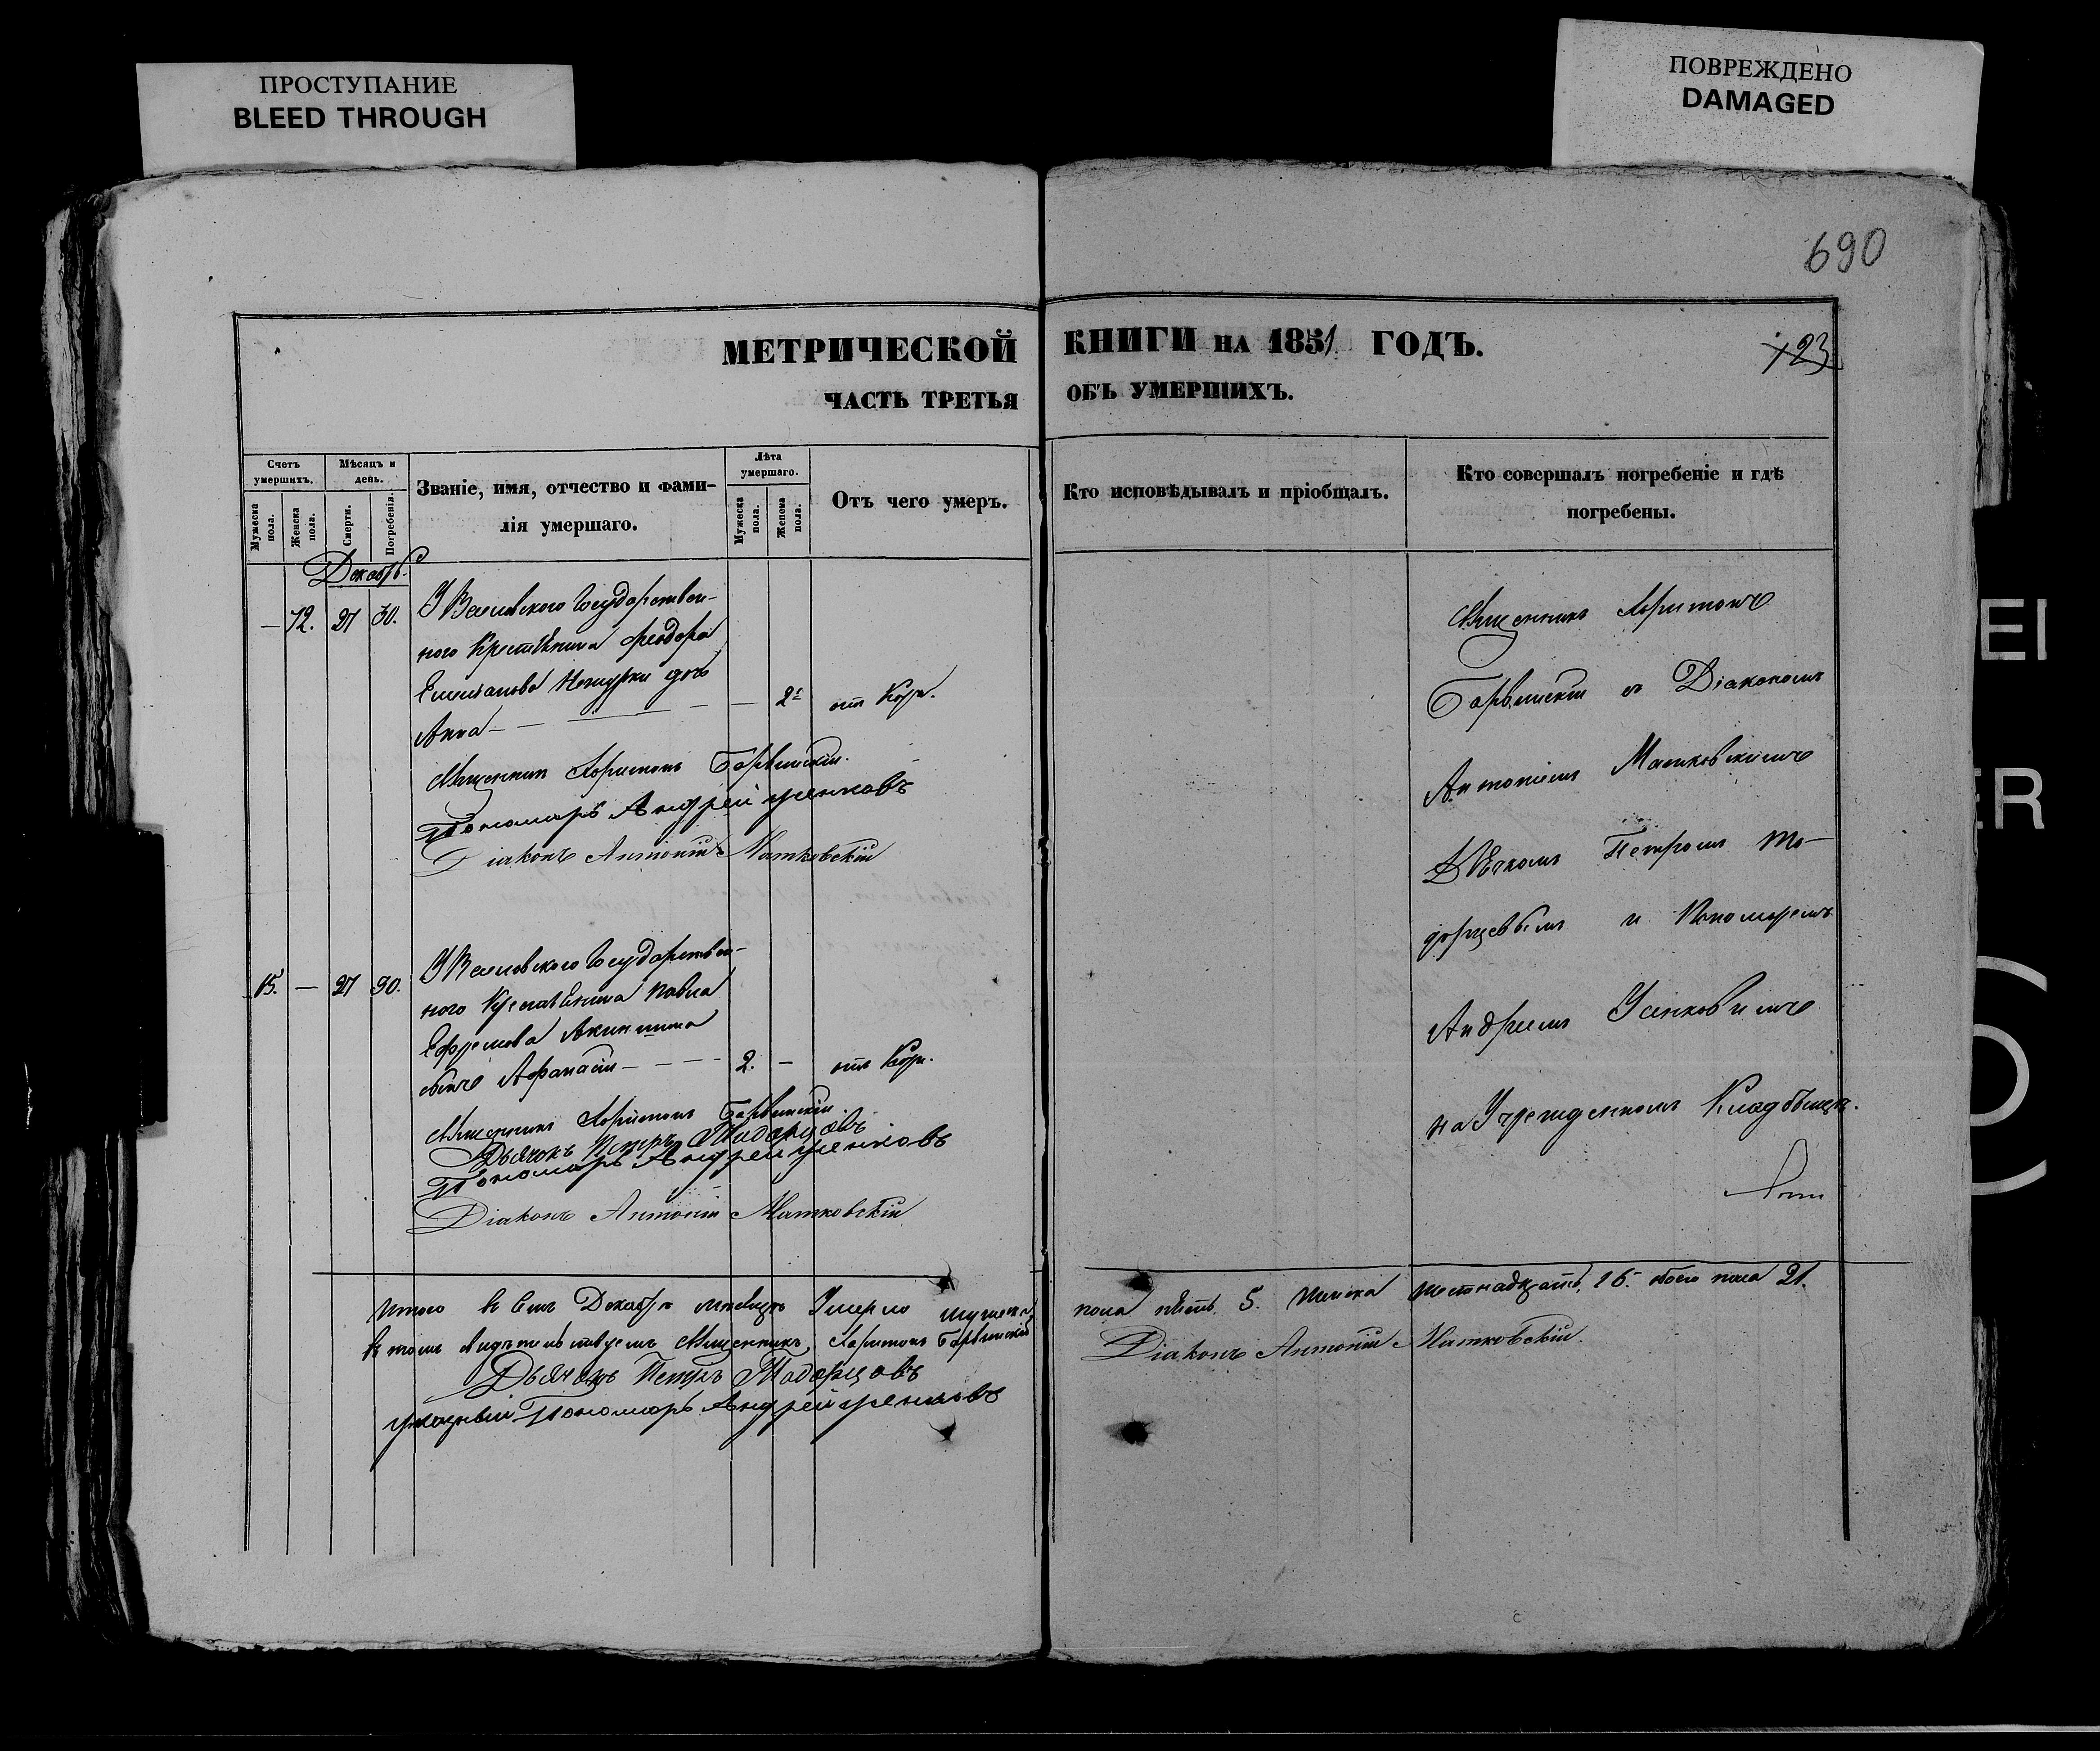 ПРОСТУПАНИЕ
BLEED THROUGH
ПОВРЕЖДЕНО
DAMAGED
690
МЕТРИЧЕСКОЙ КНИГИ НА 1851 ГОДЪ.
123
ЧАСТЬ ТРЕТЬЯ ОБЪ УМЕРШИХЪ.
Счетъ умершихъ.
Мужеска пола.
Женска пола.
Мѣсяцъ и день.
Смерти.
Погребенія.
Званіе, имя, отчество и фами-
лія умершаго.
Лѣта умершаго.
Мужеска пола.
Женска пола.
Отъ чего умеръ.
Кто исповѣдывалъ и пріобщалъ.
Кто совершалъ погребеніе и гдѣ
погребены.
Декабрь
— 12. 27 30.
Государствен-
ного Крестьянина Феодора
Емельянова дочь
Анна — — 2 отъ Кори.
Священникъ Харитонъ Барвинскій.
Пономарь Андрей Усенковъ
Діаконъ Антоній Матковскій
15. — 27 30.
Государствен-
ного Крестьянина Павла
Ефремова
сынъ Афанасій — 2. — отъ Кори.
Священникъ Харитонъ Барвинскій
Дьячокъ Петръ Тодорцовъ
Пономарь Андрей Усенковъ
Діаконъ Антоній Матковскій
Священникъ Харитонъ
Барвинскій съ Діакономъ
Антоніемъ Матковскимъ
Дьячкомъ Петромъ То-
дорцевымъ и Пономаремъ
Андреемъ Усенковымъ
на Учрежденномъ Кладбищѣ.
Итого въ семъ Декабрѣ мѣсяцѣ Умерло мужеска пола пять. 5. женска шестнадцать, 16. обоего пола 21.
въ томъ свидѣтельствуемъ Священникъ Харитонъ Барвинскій
Діаконъ Антоній Матковскій.
Дьячокъ Петръ Тодорцовъ
указный Пономарь Андрей Усенковъ